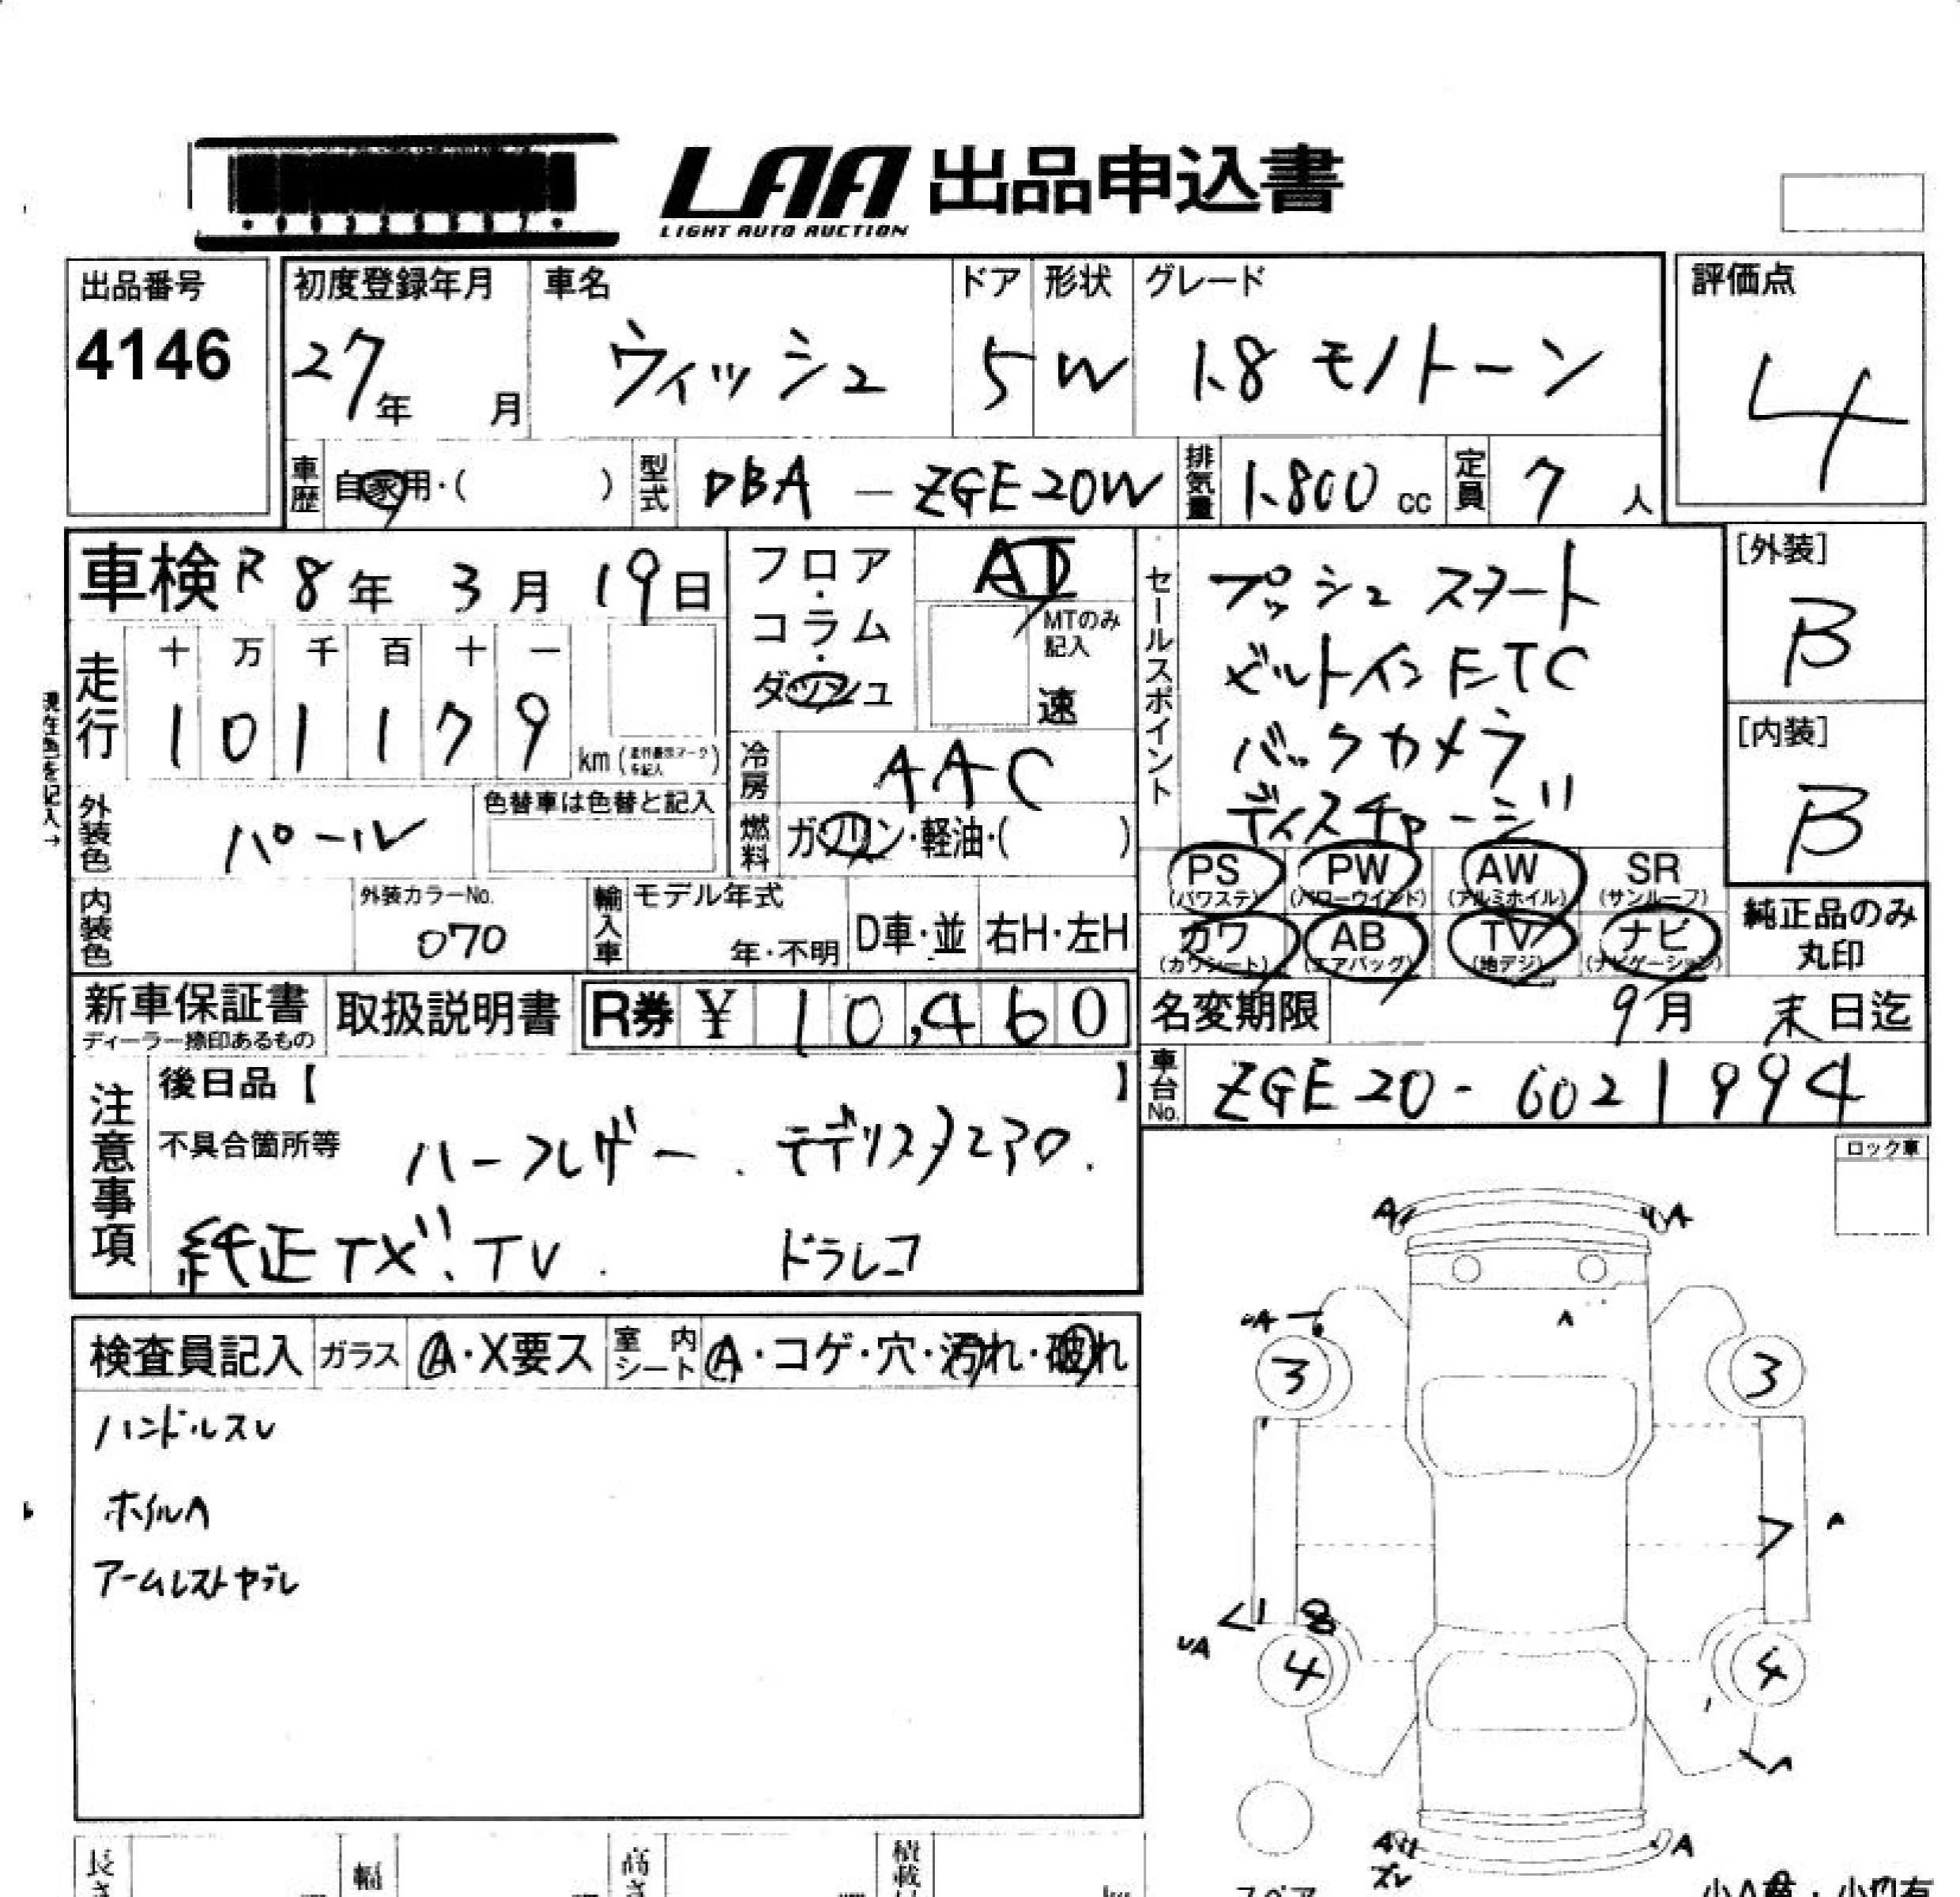 LAA 出品申込書
LIGHT AUTO AUCTION
出品番号
4146
初度登録年月
27年 月
車名
ウィッシュ
ドア
5
形状
W
グレード
1.8 モノトーン
評価点
4
車歴 自家用・( )
型式 DBA - ZGE20W
排気量 1.800 cc
定員 7 人
車検 R 8年 3月 19日
フロア・コラム・ダッシュ
AT
MTのみ記入
速
セールスポイント
プッシュスタート
ビルトインETC
バックカメラ
ディスチャージ
[外装]
B
[内装]
B
走行
十 万 千 百 十 一
1 0 1 1 7 9 km
現在色を記入→
冷房 AAC
外装色 パール
色替車は色替と記入
燃料 ガソリン・軽油・( )
PS (パワステ) PW (パワーウインド) AW (アルミホイル) SR (サンルーフ)
カワ (カワシート) AB (エアバッグ) TV (地デジ) ナビ (ナビゲーション)
純正品のみ丸印
内装色
外装カラーNo.
070
輸入車
モデル年式
年・不明
D車・並
右H・左H
新車保証書
ディーラー捺印あるもの
取扱説明書
R券 ¥ 10,460
名変期限 9月 末日迄
車台No. ZGE20-6021994
注意事項
後日品【 】
不具合箇所等 ハーフレザー.モデリスタエアロ.
純正TXナビ.TV. ドラレコ
ロック車
検査員記入
ガラス A・X要ス
室内シート A・コゲ・穴・汚れ・破れ
ハンドルスレ
ホイルA
アームレストヤブレ
A A
UA
3 3
A
UA
4 4
A
ズレ
スペア
長さ
幅
高さ
積載